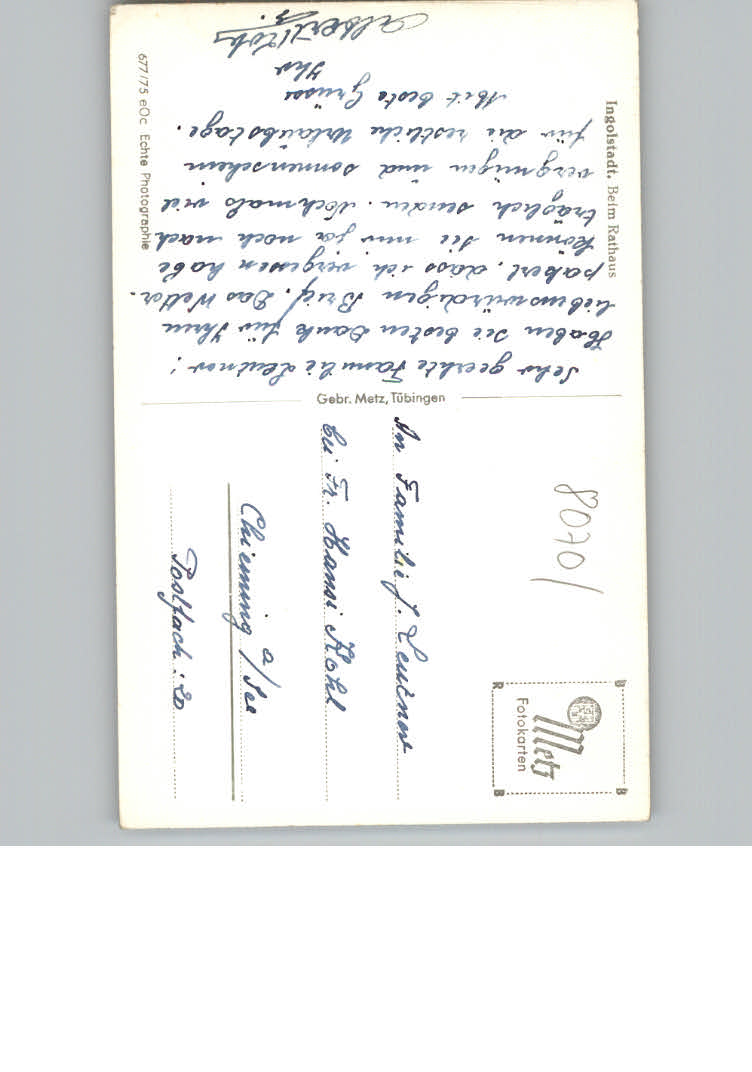 Ingolstadt. Beim Rathaus
Sehr geerhte Familie Leutner!
Haben Sie besten Dank für Ihren
liebenswürdigen Brief. Das Wetter.
paket, dass ich vergessen habe
können Sie mir ja noch nach
träglich senden. Nochmals viel
vergnügen und sonnenschein
für die restliche Urlaubstage.
Mit beste Grüsse
Ihr
Albert
677/75 eOc Echte Photographie
Gebr. Metz, Tübingen
8070/
Metz
Fotokarten
An Familie J. Leutner
bei Fr. Hansi Kohl
Chieming a/See
Postfach: 20